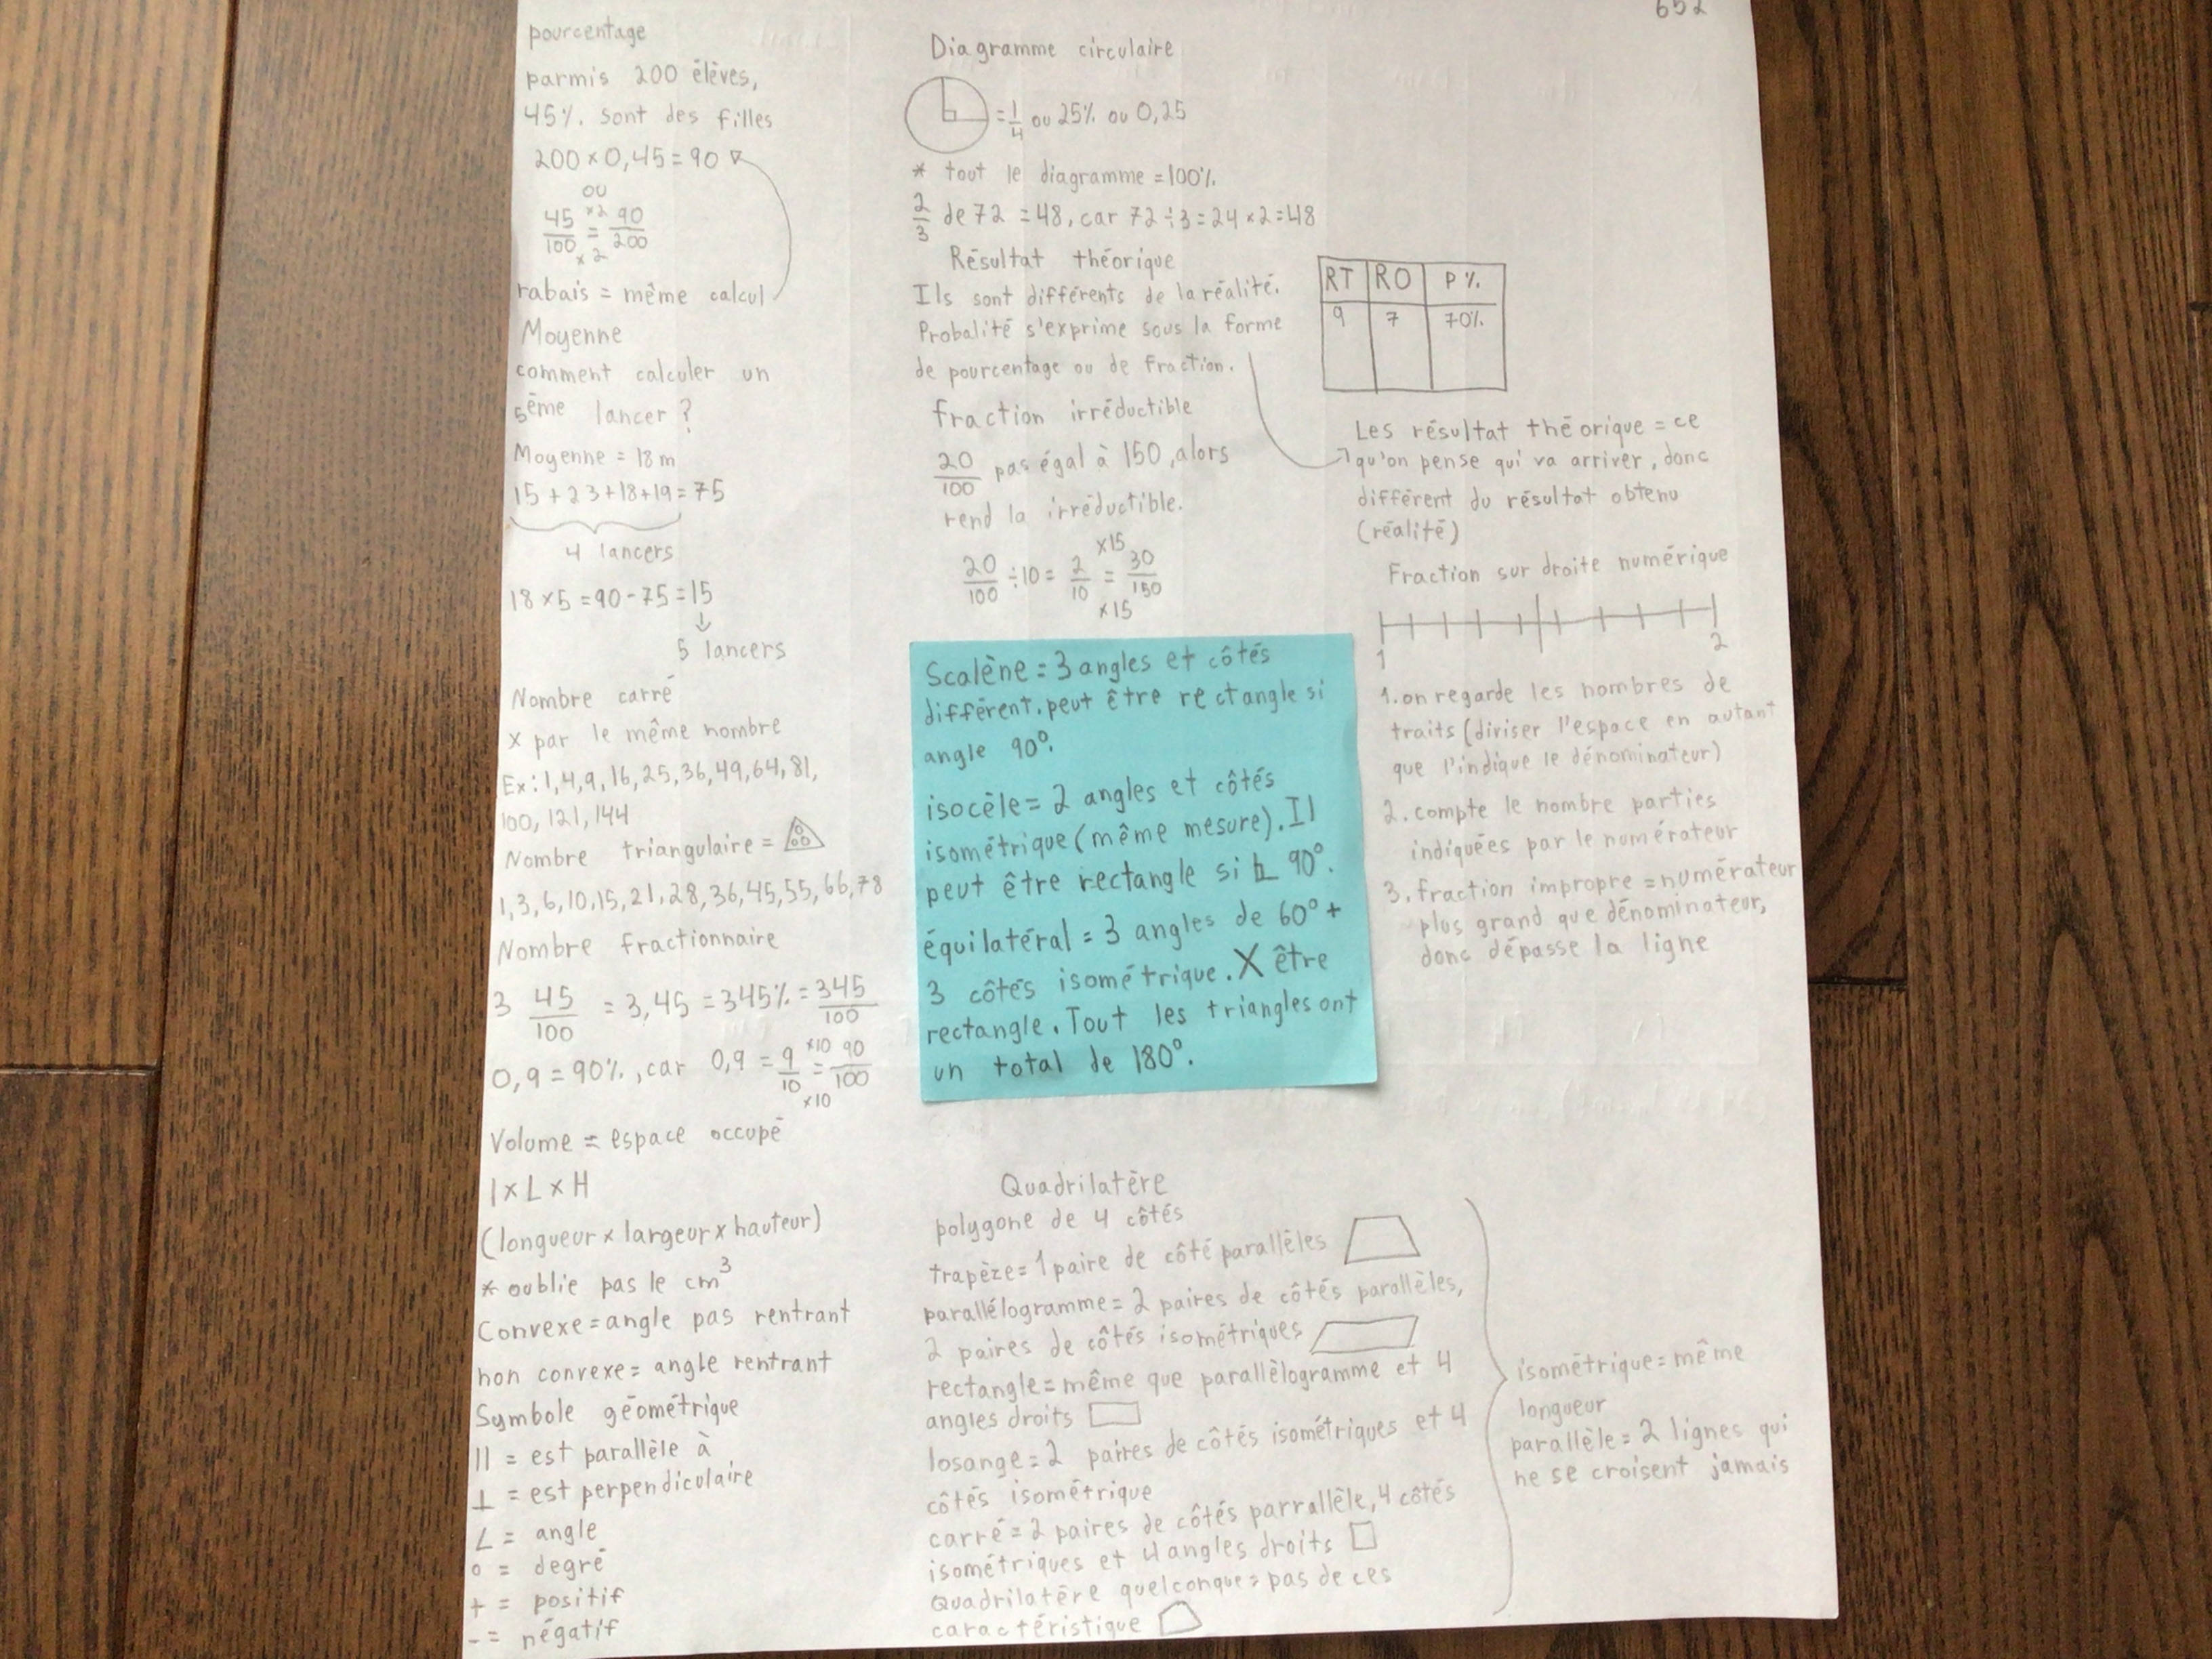 652
pourcentage
parmis 200 élèves,
45% sont des filles
200 x 0,45 = 90
ou
45/100 = 90/200
x2
x2
rabais = même calcul
Moyenne
comment calculer un
5ème lancer ?
Moyenne = 18 m
15 + 23 + 18 + 19 = 75
4 lancers
18 x 5 = 90 - 75 = 15
↓
5 lancers
Nombre carré
x par le même nombre
Ex : 1, 4, 9, 16, 25, 36, 49, 64, 81,
100, 121, 144
Nombre triangulaire =
1, 3, 6, 10, 15, 21, 28, 36, 45, 55, 66, 78
Nombre fractionnaire
3 45/100 = 3,45 = 345% = 345/100
0,9 = 90%, car 0,9 = 9/10 = 90/100
x10
x10
Volume = espace occupé
l x L x H
(longueur x largeur x hauteur)
* oublie pas le cm³
Convexe = angle pas rentrant
non convexe = angle rentrant
Symbole géométrique
|| = est parallèle à
⊥ = est perpendiculaire
∠ = angle
° = degré
+ = positif
- = négatif
Diagramme circulaire
= 1/4 ou 25% ou 0,25
* tout le diagramme = 100%
2/3 de 72 = 48, car 72 ÷ 3 = 24 x 2 = 48
Résultat théorique
Ils sont différents de la réalité.
Probalité s'exprime sous la forme
de pourcentage ou de fraction.
fraction irréductible
20/100 pas égal à 150, alors
rend la irréductible.
20/100 ÷ 10 = 2/10 = 30/150
x15
x15
Scalène = 3 angles et côtés
différent. peut être rectangle si
angle 90°.
isocèle = 2 angles et côtés
isométrique (même mesure). Il
peut être rectangle si 90°.
équilatéral = 3 angles de 60° +
3 côtés isométrique. X être
rectangle. Tout les triangles ont
un total de 180°.
Quadrilatère
polygone de 4 côtés
trapèze = 1 paire de côté parallèles
parallélogramme = 2 paires de côtés parallèles,
2 paires de côtés isométriques
rectangle = même que parallèlogramme et 4
angles droits
losange = 2 paires de côtés isométriques et 4
côtés isométrique
carré = 2 paires de côtés parrallèle, 4 côtés
isométriques et 4 angles droits
Quadrilatère quelconque = pas de ces
caractéristique
RT RO P%
9 7 70%
Les résultat théorique = ce
qu'on pense qui va arriver, donc
différent du résultat obtenu
(réalité)
Fraction sur droite numérique
1 2
1. on regarde les nombres de
traits (diviser l'espace en autant
que l'indique le dénominateur)
2. compte le nombre parties
indiquées par le numérateur
3. fraction impropre = numérateur
plus grand que dénominateur,
donc dépasse la ligne
isométrique = même
longueur
parallèle = 2 lignes qui
ne se croisent jamais